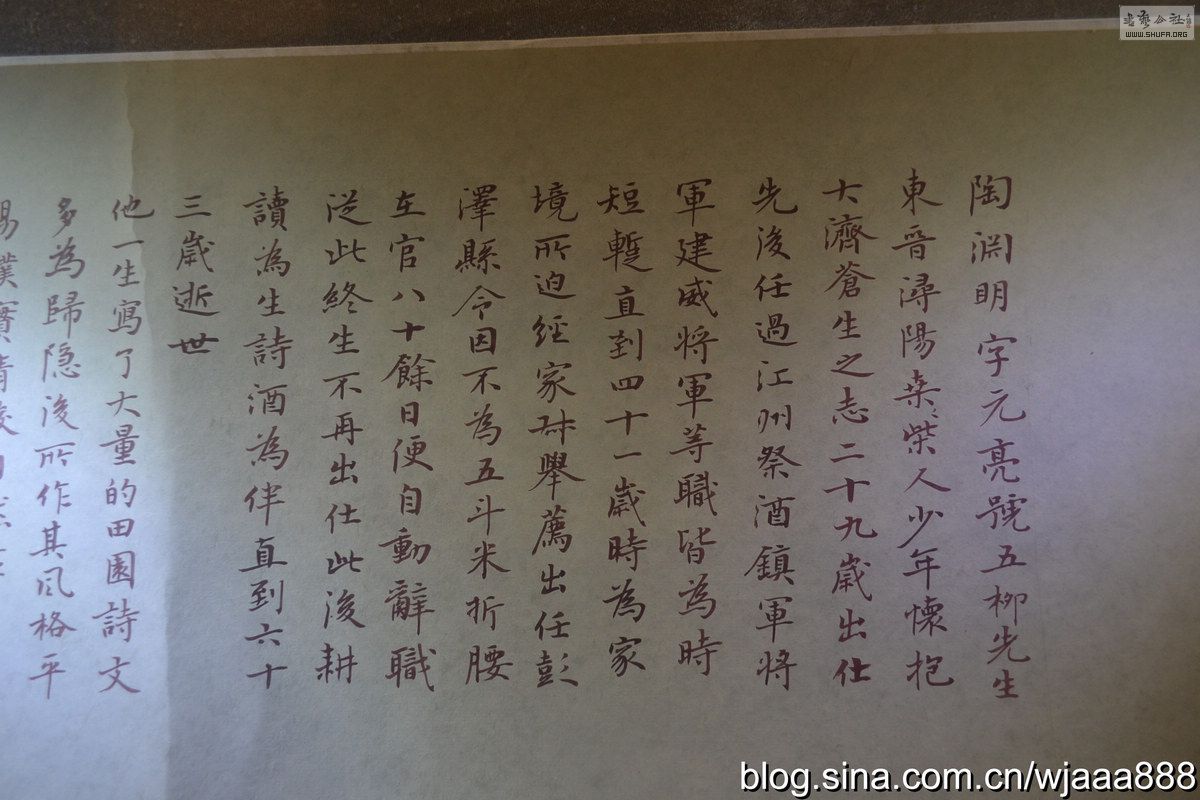 陶淵明字元亮號五柳先生
東晉潯陽柴桑人少年懷抱
大濟蒼生之志二十九歲出仕
先後任過江州祭酒鎮軍將
軍建威將軍等職皆為時
短暫直到四十一歲時為家
境所迫經家叔舉薦出任彭
澤縣令因不為五斗米折腰
在官八十餘日便自動辭職
從此終生不再出仕此後耕
讀為生詩酒為伴直到六十
三歲逝世
他一生寫了大量的田園詩文
多為歸隱後所作其風格平
樸實
書藝公社
WWW.SHUFA.ORG
blog.sina.com.cn/wjaaa888